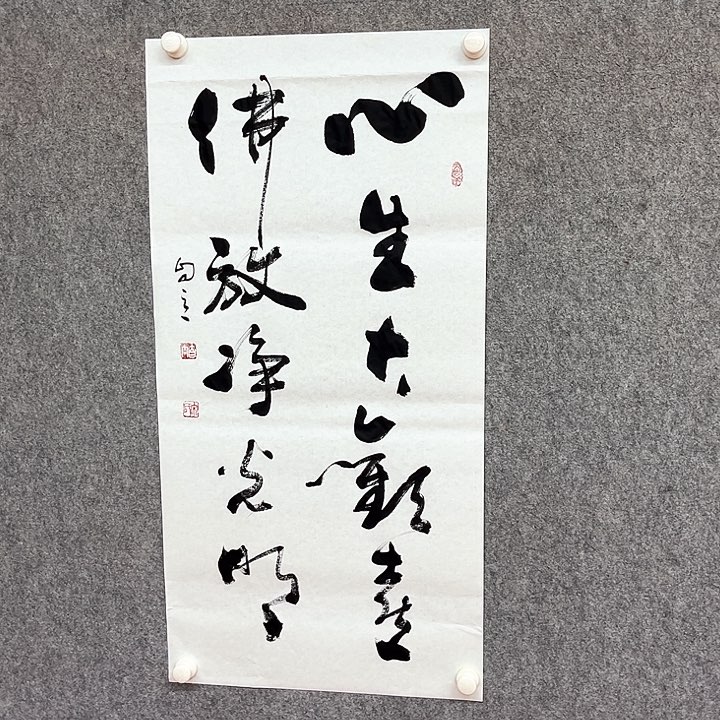 心生大歡喜
佛放淨光明